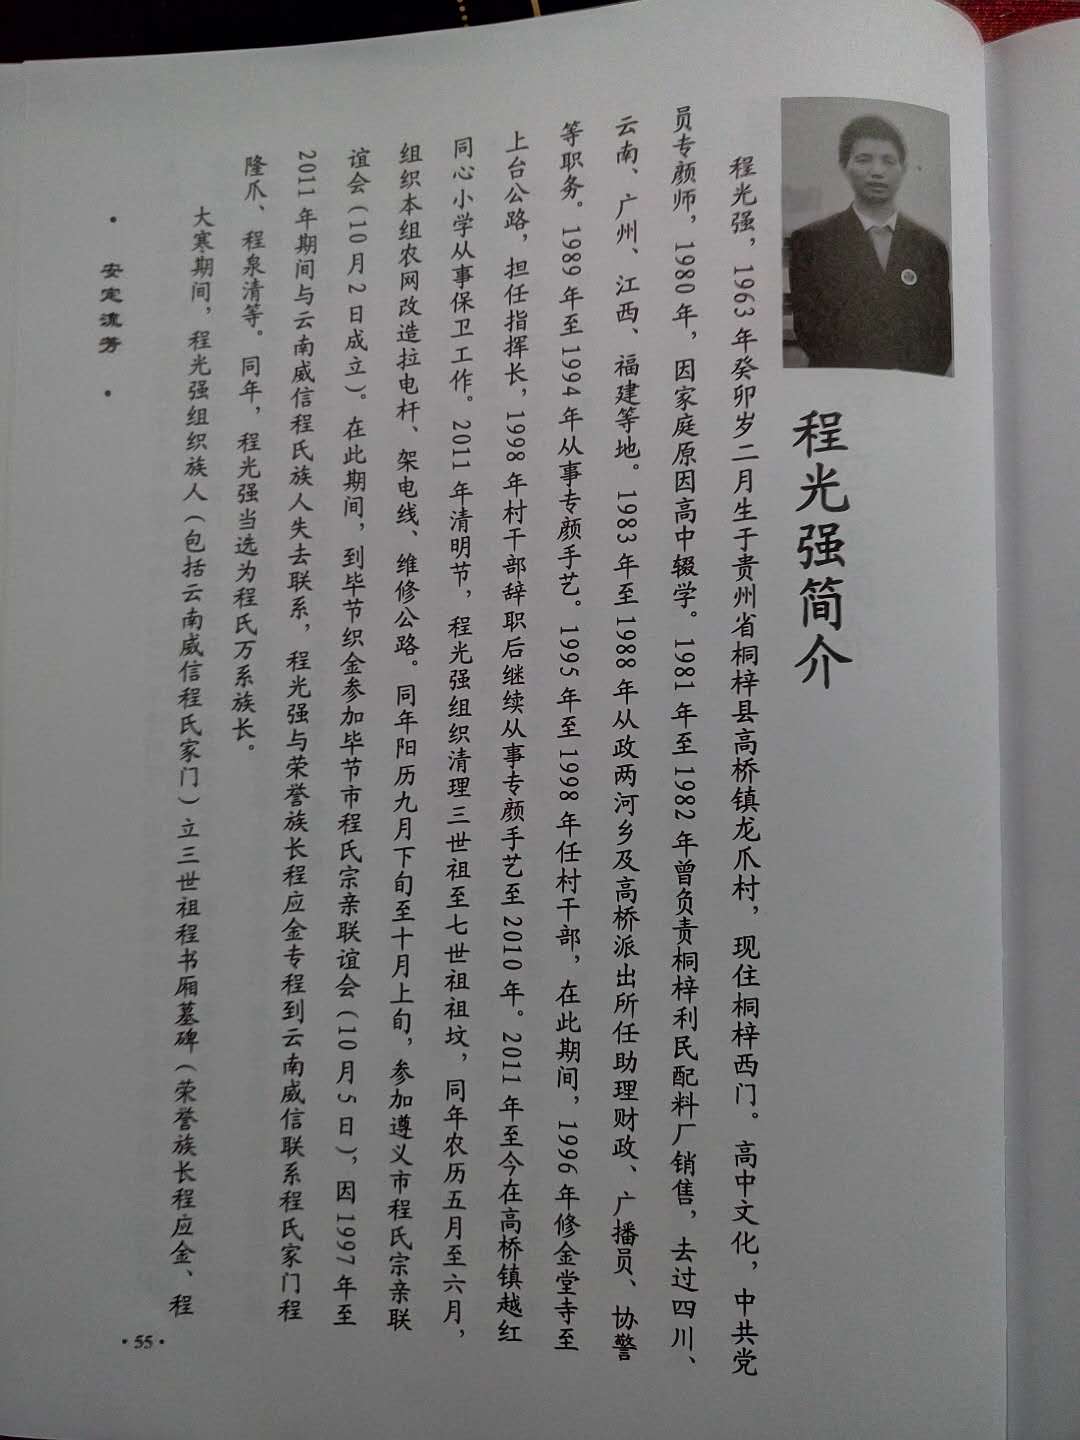 程光强简介
程光强，1963年癸卯岁二月生于贵州省桐梓县高桥镇龙爪村，现住桐梓西门。高中文化，中共党
员专颜师，1980年，因家庭原因高中辍学。1981年至1982年曾负责桐梓利民配料厂销售，去过四川、
云南、广州、江西、福建等地。1983年至1988年从政两河乡及高桥派出所任助理财政、广播员、协警
等职务。1989年至1994年从事专颜手艺。1995年至1998年任村干部，在此期间，1996年修金堂寺至
上台公路，担任指挥长，1998年村干部辞职后继续从事专颜手艺至2010年。2011年至今在高桥镇越红
同心小学从事保卫工作。2011年清明节，程光强组织清理三世祖至七世祖祖坟，同年农历五月至六月，
组织本组农网改造拉电杆、架电线、维修公路。同年阳历九月下旬至十月上旬，参加遵义市程氏宗亲联
谊会（10月2日成立）。在此期间，到毕节织金参加毕节市程氏宗亲联谊会（10月5日），因1997年至
2011年期间与云南威信程氏族人失去联系，程光强与荣誉族长程应金专程到云南威信联系程氏家门程
隆爪、程泉清等。同年，程光强当选为程氏万系族长。
大寒期间，程光强组织族人（包括云南威信程氏家门）立三世祖程书厢墓碑（荣誉族长程应金、程
·安定流芳·
·55·